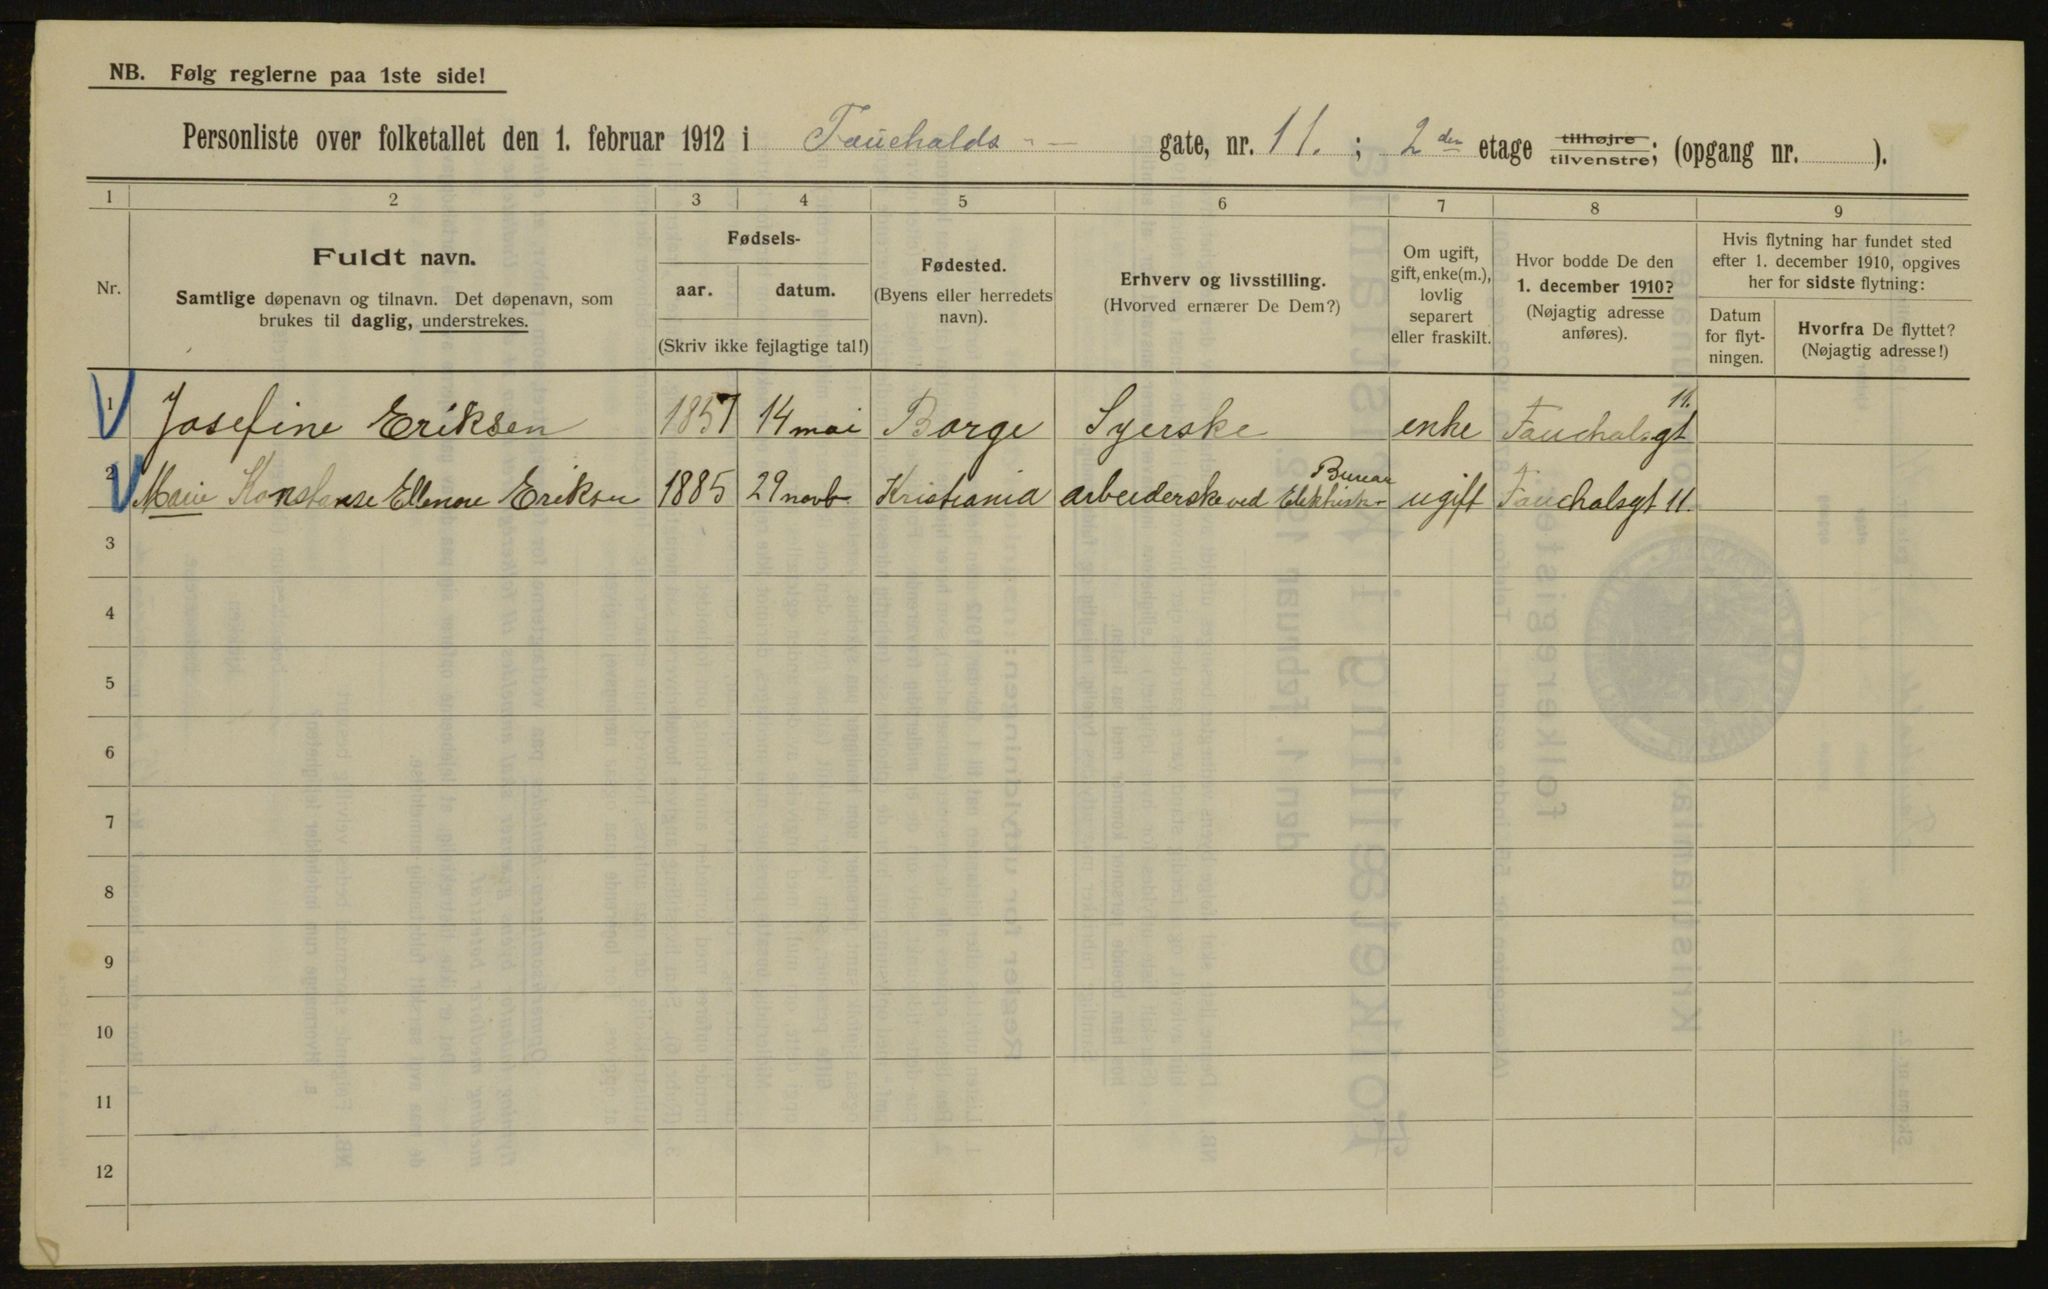 NB. Følg reglerne paa 1ste side!
Personliste over folketallet den 1. februar 1912 i Fauchalds - — gate, nr. 11. ; 2den etage tilhøjre tilvenstre; (opgang nr. ).
1 2 3 4 5 6 7 8 9
Nr.
Fuldt navn.
Samtlige døpenavn og tilnavn. Det døpenavn, som
brukes til daglig, understrekes.
Fødsels-
aar. datum.
(Skriv ikke fejlagtige tal!)
Fødested.
(Byens eller herredets
navn).
Erhverv og livsstilling.
(Hvorved ernærer De Dem?)
Om ugift,
gift, enke(m.),
lovlig
separert
eller fraskilt.
Hvor bodde De den
1. december 1910?
(Nøjagtig adresse
anføres).
Hvis flytning har fundet sted
efter 1. december 1910, opgives
her for sidste flytning:
Datum
for flyt-
ningen.
Hvorfra De flyttet?
(Nøjagtig adresse!)
1 Josefine Eriksen 1857 14 mai Borge Syerske enke Fauchalsgt 11.
2 Marie Konstanse Ellenore Eriksen 1885 29 novb Kristiania arbeiderske ved Elektrisk ugift Fauchalsgt 11.
3
4
5
6
7
8
9
10
11
12